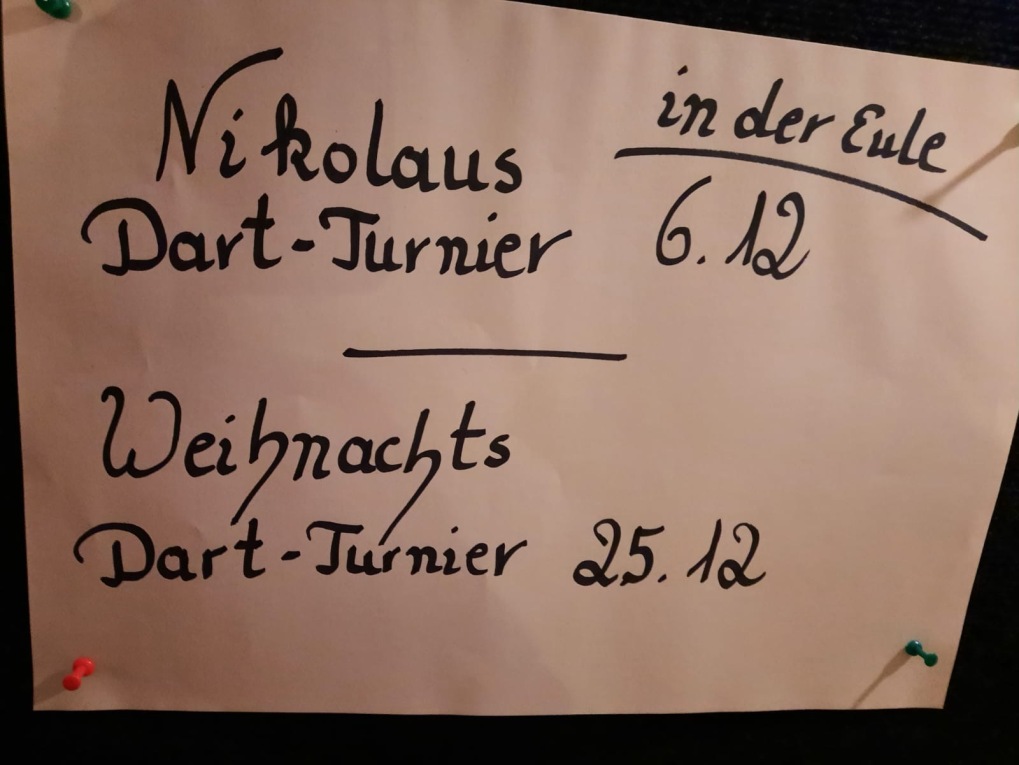 Nikolaus
in der Eule
Dart-Turnier 6.12
Weihnachts
Dart-Turnier 25.12